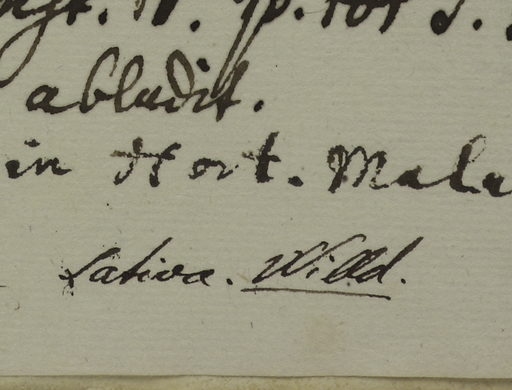 p. 107
abludit.
in Hort. Mala
sativa. Willd.